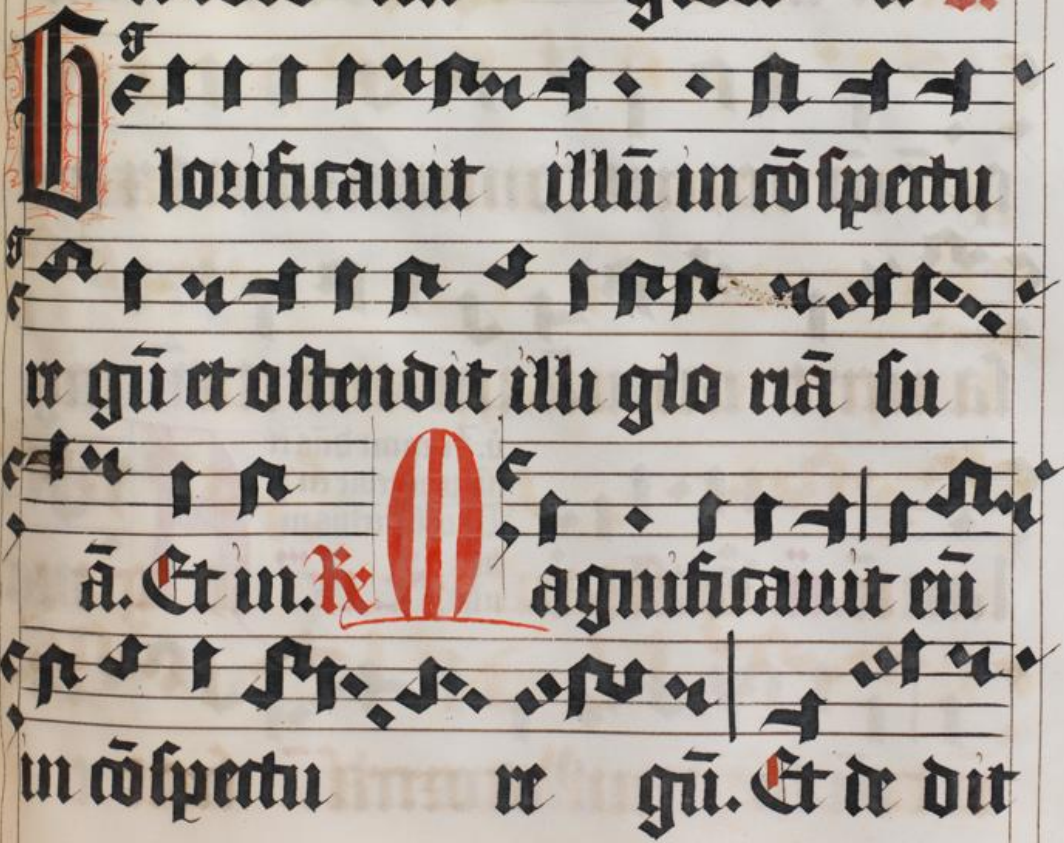 Glorificauit illū in cōspectu
re gū et ostendit illi glo riā su
ā. Et in. ℟ Magnificauit eū
in cōspectu re gū. Et de dit